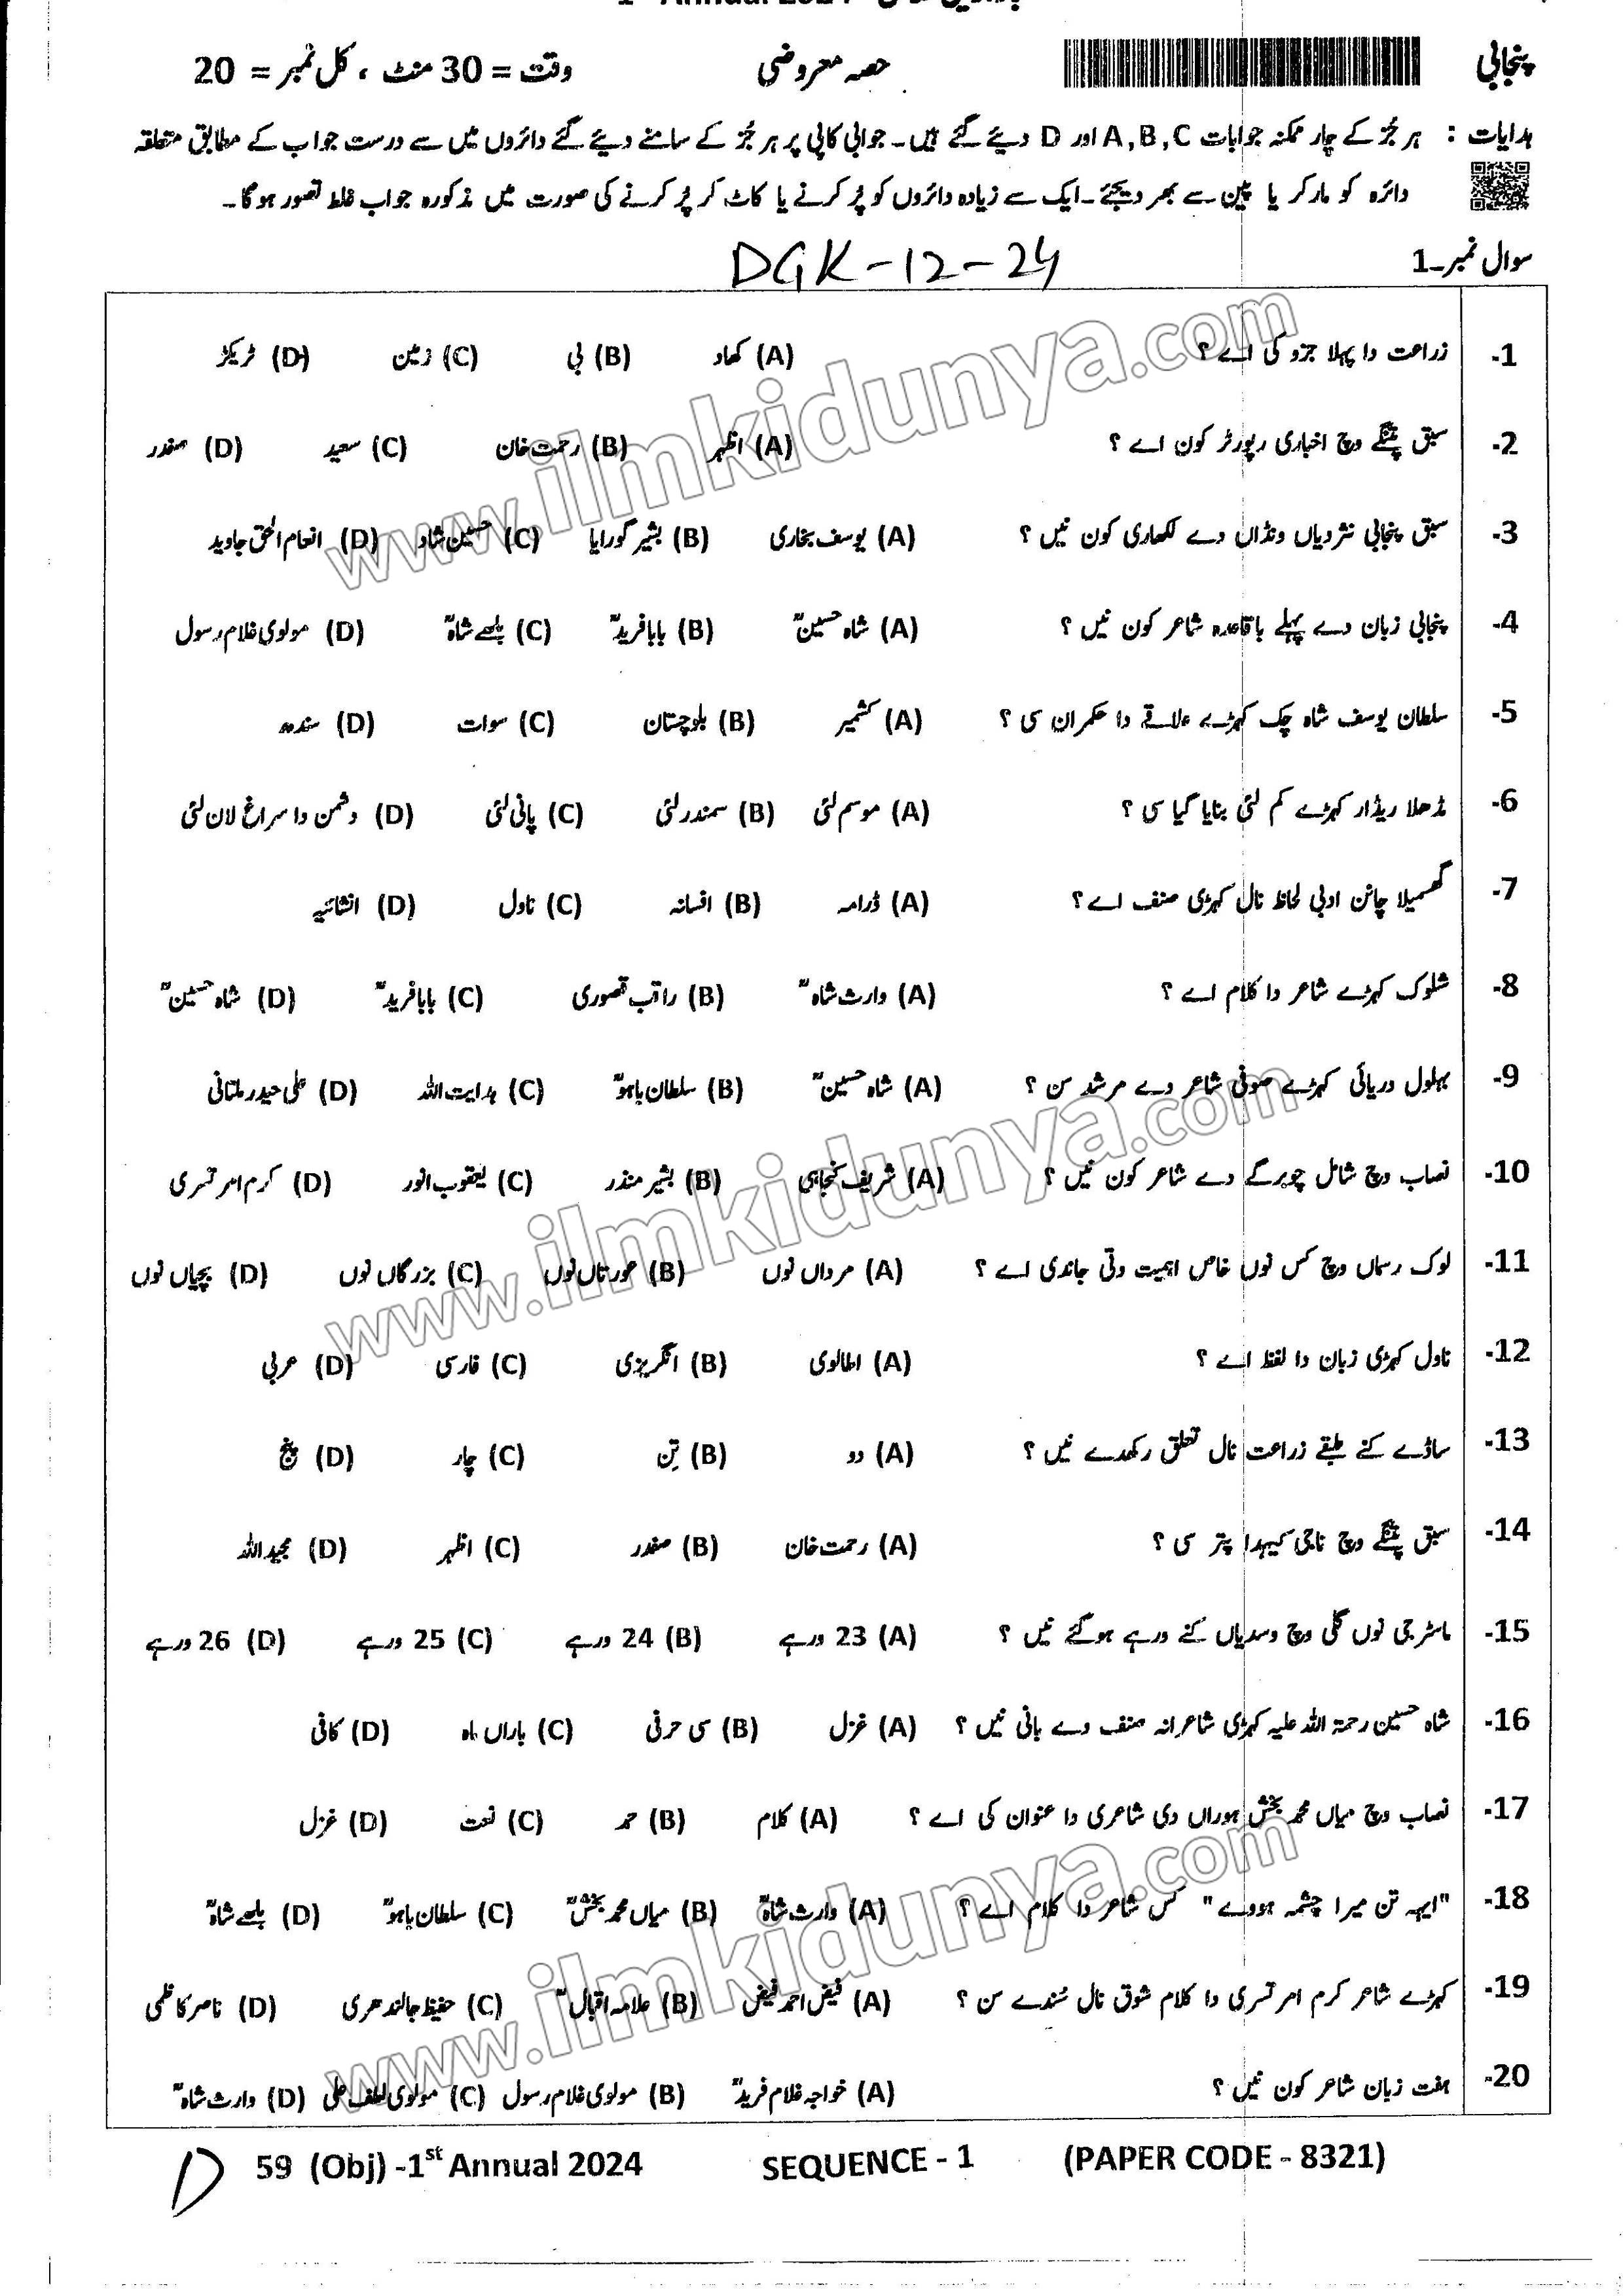 1 - Annual 2024
پنجابی حصہ معروضی وقت = 30 منٹ ، کل نمبر = 20
ہدایات : ہر جُز کے چار ممکنہ جوابات A,B,C اور D دیئے گئے ہیں۔ جوابی کاپی پر ہر جُز کے سامنے دیئے گئے دائروں میں سے درست جواب کے مطابق متعلقہ
دائرہ کو مارکر یا پین سے بھر دیجئے۔ ایک سے زیادہ دائروں کو پُر کرنے یا کاٹ کر پُر کرنے کی صورت میں مذکورہ جواب غلط تصور ہوگا۔
سوال نمبر۔1 DGK-12-24
1- زراعت دا پہلا جزو کی اے ؟ (A) کھاد (B) بی (C) زمین (D) ٹریکٹر
2- سبق پتنگے وچ اخباری رپورٹر کون اے ؟ (A) اظہر (B) رحمت خان (C) سعید (D) صفدر
3- سبق پنجابی نثر دیاں ونڈاں دے لکھاری کون نیں ؟ (A) یوسف بخاری (B) بشیر گورایا (C) حسین شاد (D) انعام الحق جاوید
4- پنجابی زبان دے پہلے باقاعدہ شاعر کون نیں ؟ (A) شاہ حسینؒ (B) بابا فریدؒ (C) بلھے شاہؒ (D) مولوی غلام رسول
5- سلطان یوسف شاہ چک کہڑے علاقے دا حکمران سی ؟ (A) کشمیر (B) بلوچستان (C) سوات (D) سندھ
6- مڈھلا ریڈار کہڑے کم لئی بنایا گیا سی ؟ (A) موسم لئی (B) سمندر لئی (C) پانی لئی (D) دشمن دا سراغ لان لئی
7- گھسمیلا چانن ادبی لحاظ نال کہڑی صنف اے ؟ (A) ڈرامہ (B) افسانہ (C) ناول (D) انشائیہ
8- شلوک کہڑے شاعر دا کلام اے ؟ (A) وارث شاہؒ (B) راقب قصوری (C) بابا فریدؒ (D) شاہ حسینؒ
9- بہلول دریائی کہڑے صوفی شاعر دے مرشد سن ؟ (A) شاہ حسینؒ (B) سلطان باہوؒ (C) ہدایت اللہ (D) علی حیدر ملتانی
10- نصاب وچ شامل چوبرگے دے شاعر کون نیں ؟ (A) شریف کنجاہی (B) بشیر منذر (C) یعقوب انور (D) کرم امرتسری
11- لوک رسماں وچ کس نوں خاص اہمیت دتی جاندی اے ؟ (A) مرداں نوں (B) عورتاں نوں (C) بزرگاں نوں (D) بچیاں نوں
12- ناول کہڑی زبان دا لفظ اے ؟ (A) اطالوی (B) انگریزی (C) فارسی (D) عربی
13- ساڈے کنے طبقے زراعت نال تعلق رکھدے نیں ؟ (A) دو (B) تِن (C) چار (D) پنج
14- سبق پتنگے وچ ناجی کیہدا پتر سی ؟ (A) رحمت خان (B) صفدر (C) اظہر (D) مجید اللہ
15- ماسٹر جی نوں گلی وچ وسدیاں کنے ورہے ہوگئے نیں ؟ (A) 23 ورہے (B) 24 ورہے (C) 25 ورہے (D) 26 ورہے
16- شاہ حسین رحمۃ اللہ علیہ کہڑی شاعرانہ صنف دے بانی نیں ؟ (A) غزل (B) سی حرفی (C) باراں ماہ (D) کافی
17- نصاب وچ میاں محمد بخش ہوراں دی شاعری دا عنوان کی اے ؟ (A) کلام (B) حمد (C) نعت (D) غزل
18- "ایہہ تن میرا چشمہ ہووے" کس شاعر دا کلام اے ؟ (A) وارث شاہؒ (B) میاں محمد بخشؒ (C) سلطان باہوؒ (D) بلھے شاہؒ
19- کہڑے شاعر کرم امرتسری دا کلام شوق نال سُندے سن ؟ (A) فیض احمد فیض (B) علامہ اقبالؒ (C) حفیظ جالندھری (D) ناصر کاظمی
20- ہفت زبان شاعر کون نیں ؟ (A) خواجہ غلام فریدؒ (B) مولوی غلام رسول (C) مولوی لطف علی (D) وارث شاہؒ
D 59 (Obj) -1st Annual 2024 SEQUENCE - 1 (PAPER CODE - 8321)
www.ilmkidunya.com
www.ilmkidunya.com
www.ilmkidunya.com